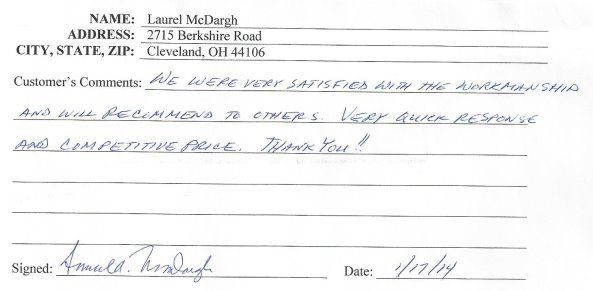 NAME: Laurel McDargh
ADDRESS: 2715 Berkshire Road
CITY, STATE, ZIP: Cleveland, OH 44106
Customer's Comments: WE WERE VERY SATISFIED WITH THE WORKMANSHIP
AND WILL RECOMMEND TO OTHERS. VERY QUICK RESPONSE
AND COMPETITIVE PRICE. THANK YOU!!
Signed: McDargh Date: 1/17/14